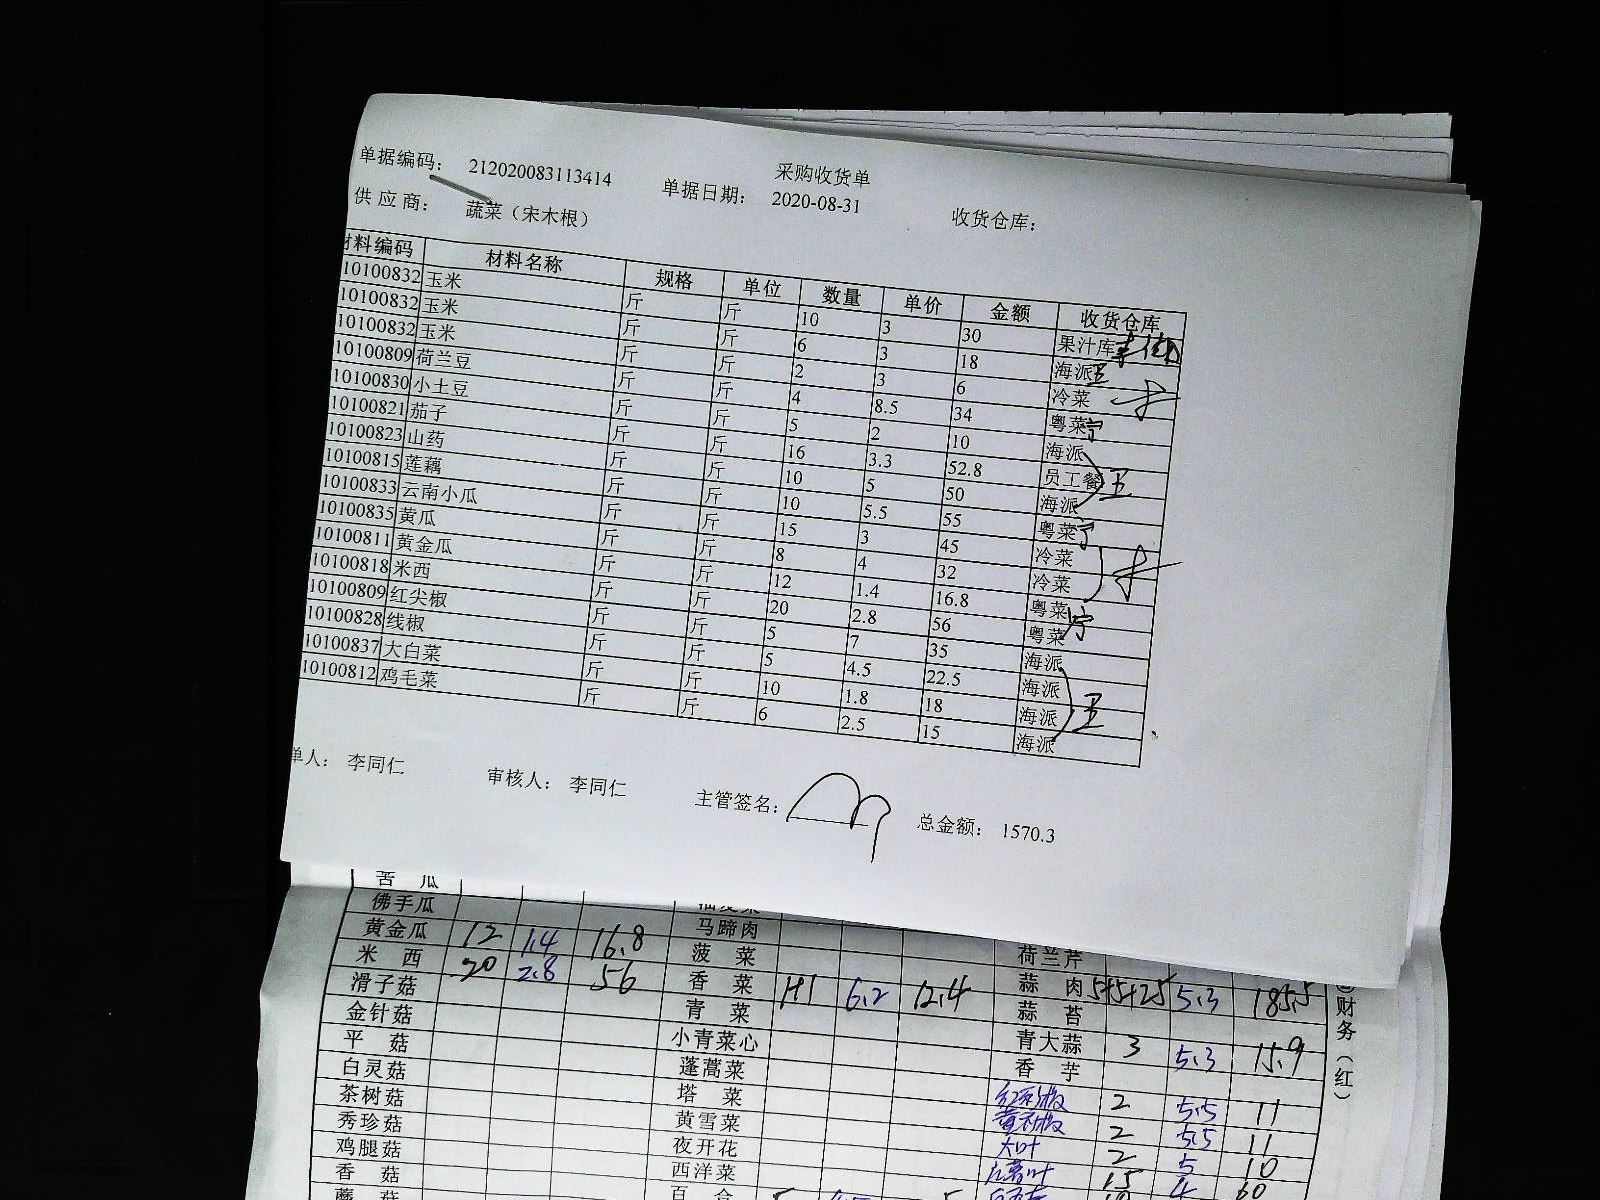 采购收货单
单据编码： 212020083113414 单据日期： 2020-08-31 收货仓库：
供应商： 蔬菜（宋木根）
材料编码 材料名称 规格 单位 数量 单价 金额 收货仓库
10100832 玉米 斤 斤 10 3 30 果汁库
10100832 玉米 斤 斤 6 3 18 海派 王
10100832 玉米 斤 斤 2 3 6 冷菜
10100809 荷兰豆 斤 斤 4 8.5 34 粤菜 宁
10100830 小土豆 斤 斤 5 2 10 海派
10100821 茄子 斤 斤 16 3.3 52.8 员工餐 王
10100823 山药 斤 斤 10 5 50 海派
10100815 莲藕 斤 斤 10 5.5 55 粤菜 宁
10100833 云南小瓜 斤 斤 15 3 45 冷菜
10100835 黄瓜 斤 斤 8 4 32 冷菜
10100811 黄金瓜 斤 斤 12 1.4 16.8 粤菜
10100818 米西 斤 斤 20 2.8 56 粤菜 宁
10100809 红尖椒 斤 斤 5 7 35 海派
10100828 线椒 斤 斤 5 4.5 22.5 海派
10100837 大白菜 斤 斤 10 1.8 18 海派 王
10100812 鸡毛菜 斤 斤 6 2.5 15 海派
单人： 李同仁 审核人： 李同仁 主管签名： 总金额： 1570.3
苦瓜
佛手瓜
黄金瓜 12 1.4 16.8 马蹄肉 荷兰芹
米西 20 2.8 56 菠菜 蒜肉 5.3 185.5
滑子菇 香菜 1+1 6.2 12.4 蒜苔
金针菇 青菜 青大蒜 3 5.3 15.9
平菇 小青菜心 香芋
白灵菇 蓬蒿菜 2 5.5 11
茶树菇 塔菜 2 5.5 11
秀珍菇 黄雪菜 大叶 2 5 10
鸡腿菇 夜开花 15 4 60
香菇 西洋菜
蘑菇 百合
财务（红）